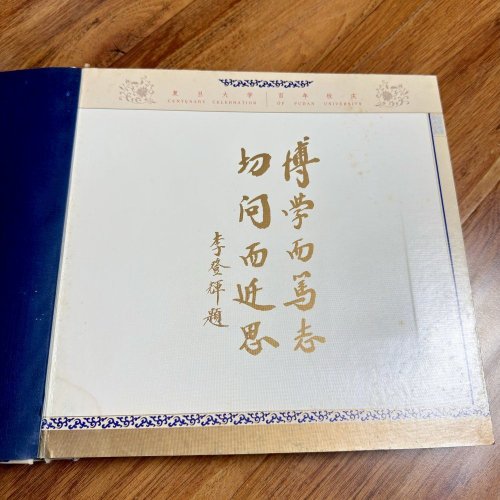 复旦大学 百年校庆
CENTENARY CELEBRATION OF FUDAN UNIVERSITY
博学而篤志
切问而近思
李登輝題